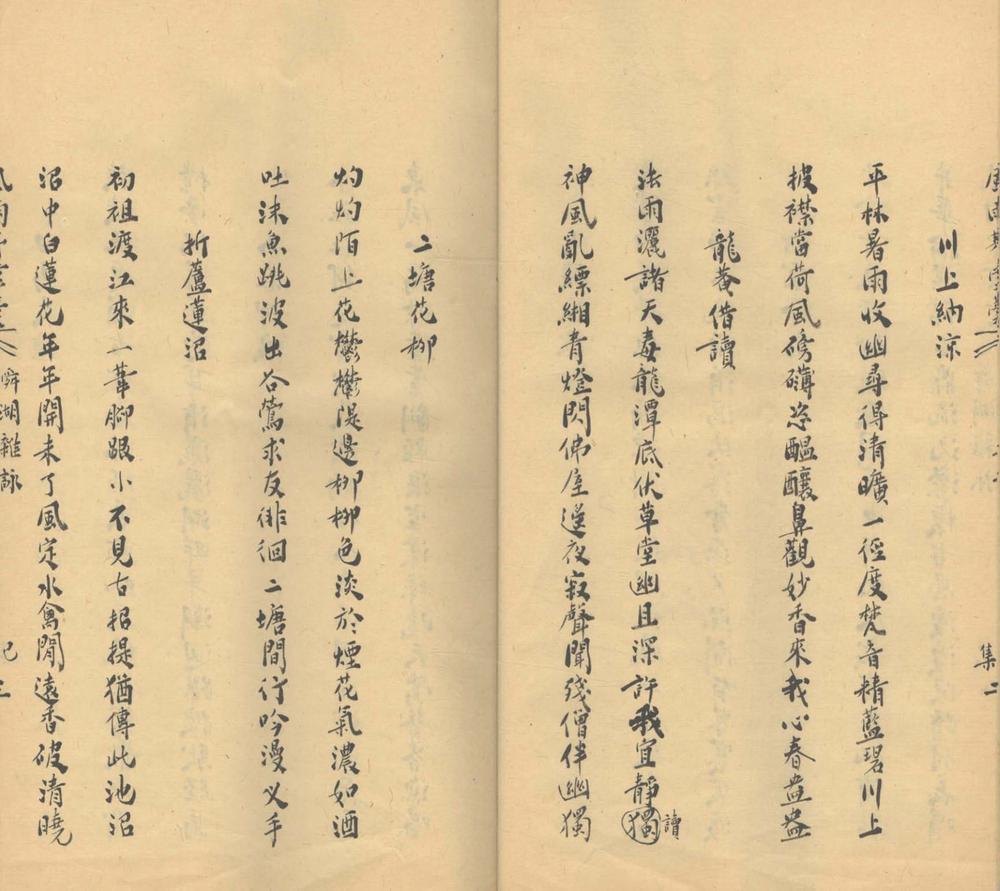 集二
川上納涼
平林暑雨收幽尋得清曠一徑度梵音精藍碧川上
披襟當荷風磅礴恣醞釀鼻觀妙香來我心春盎盎
龍菴借讀
法雨灑諸天毒龍潭底伏草堂幽且深許我宜靜獨讀
神風亂縹緗青燈閃佛屋邃夜寂聲聞殘僧伴幽獨
二塘花柳
灼灼陌上花鬱鬱隄邊柳柳色淡於煙花氣濃如酒
吐沫魚跳波出谷鶯求友徘徊二塘間行吟漫叉手
折蘆蓮沼
初祖渡江來一葦腳跟小不見古招提猶傳此池沼
沼中白蓮花年年開未了風定水禽閒遠香破清曉
湖雜詠